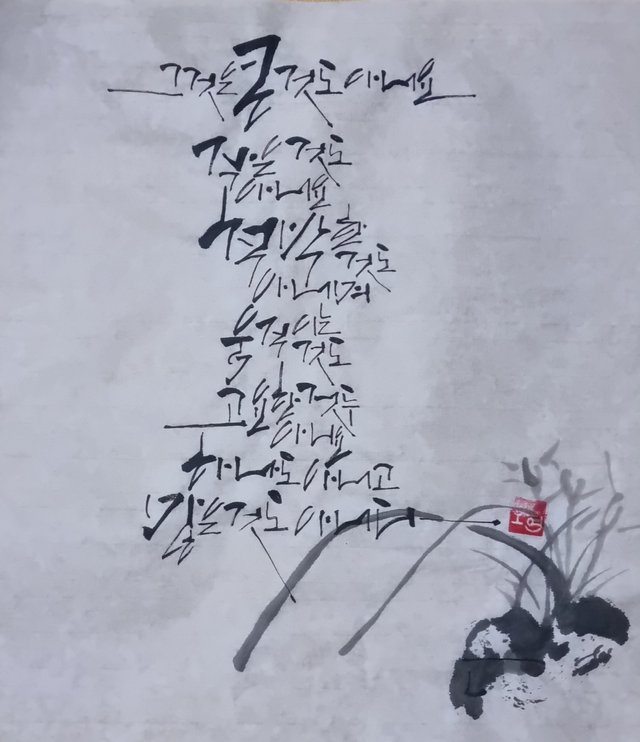 그것은 큰 것도 아니요
작은 것도
아니요
적막한
것도
아니며
움직이는
것도
고요한 것도
아니요
하나도 아니고
많은 것도 아니다